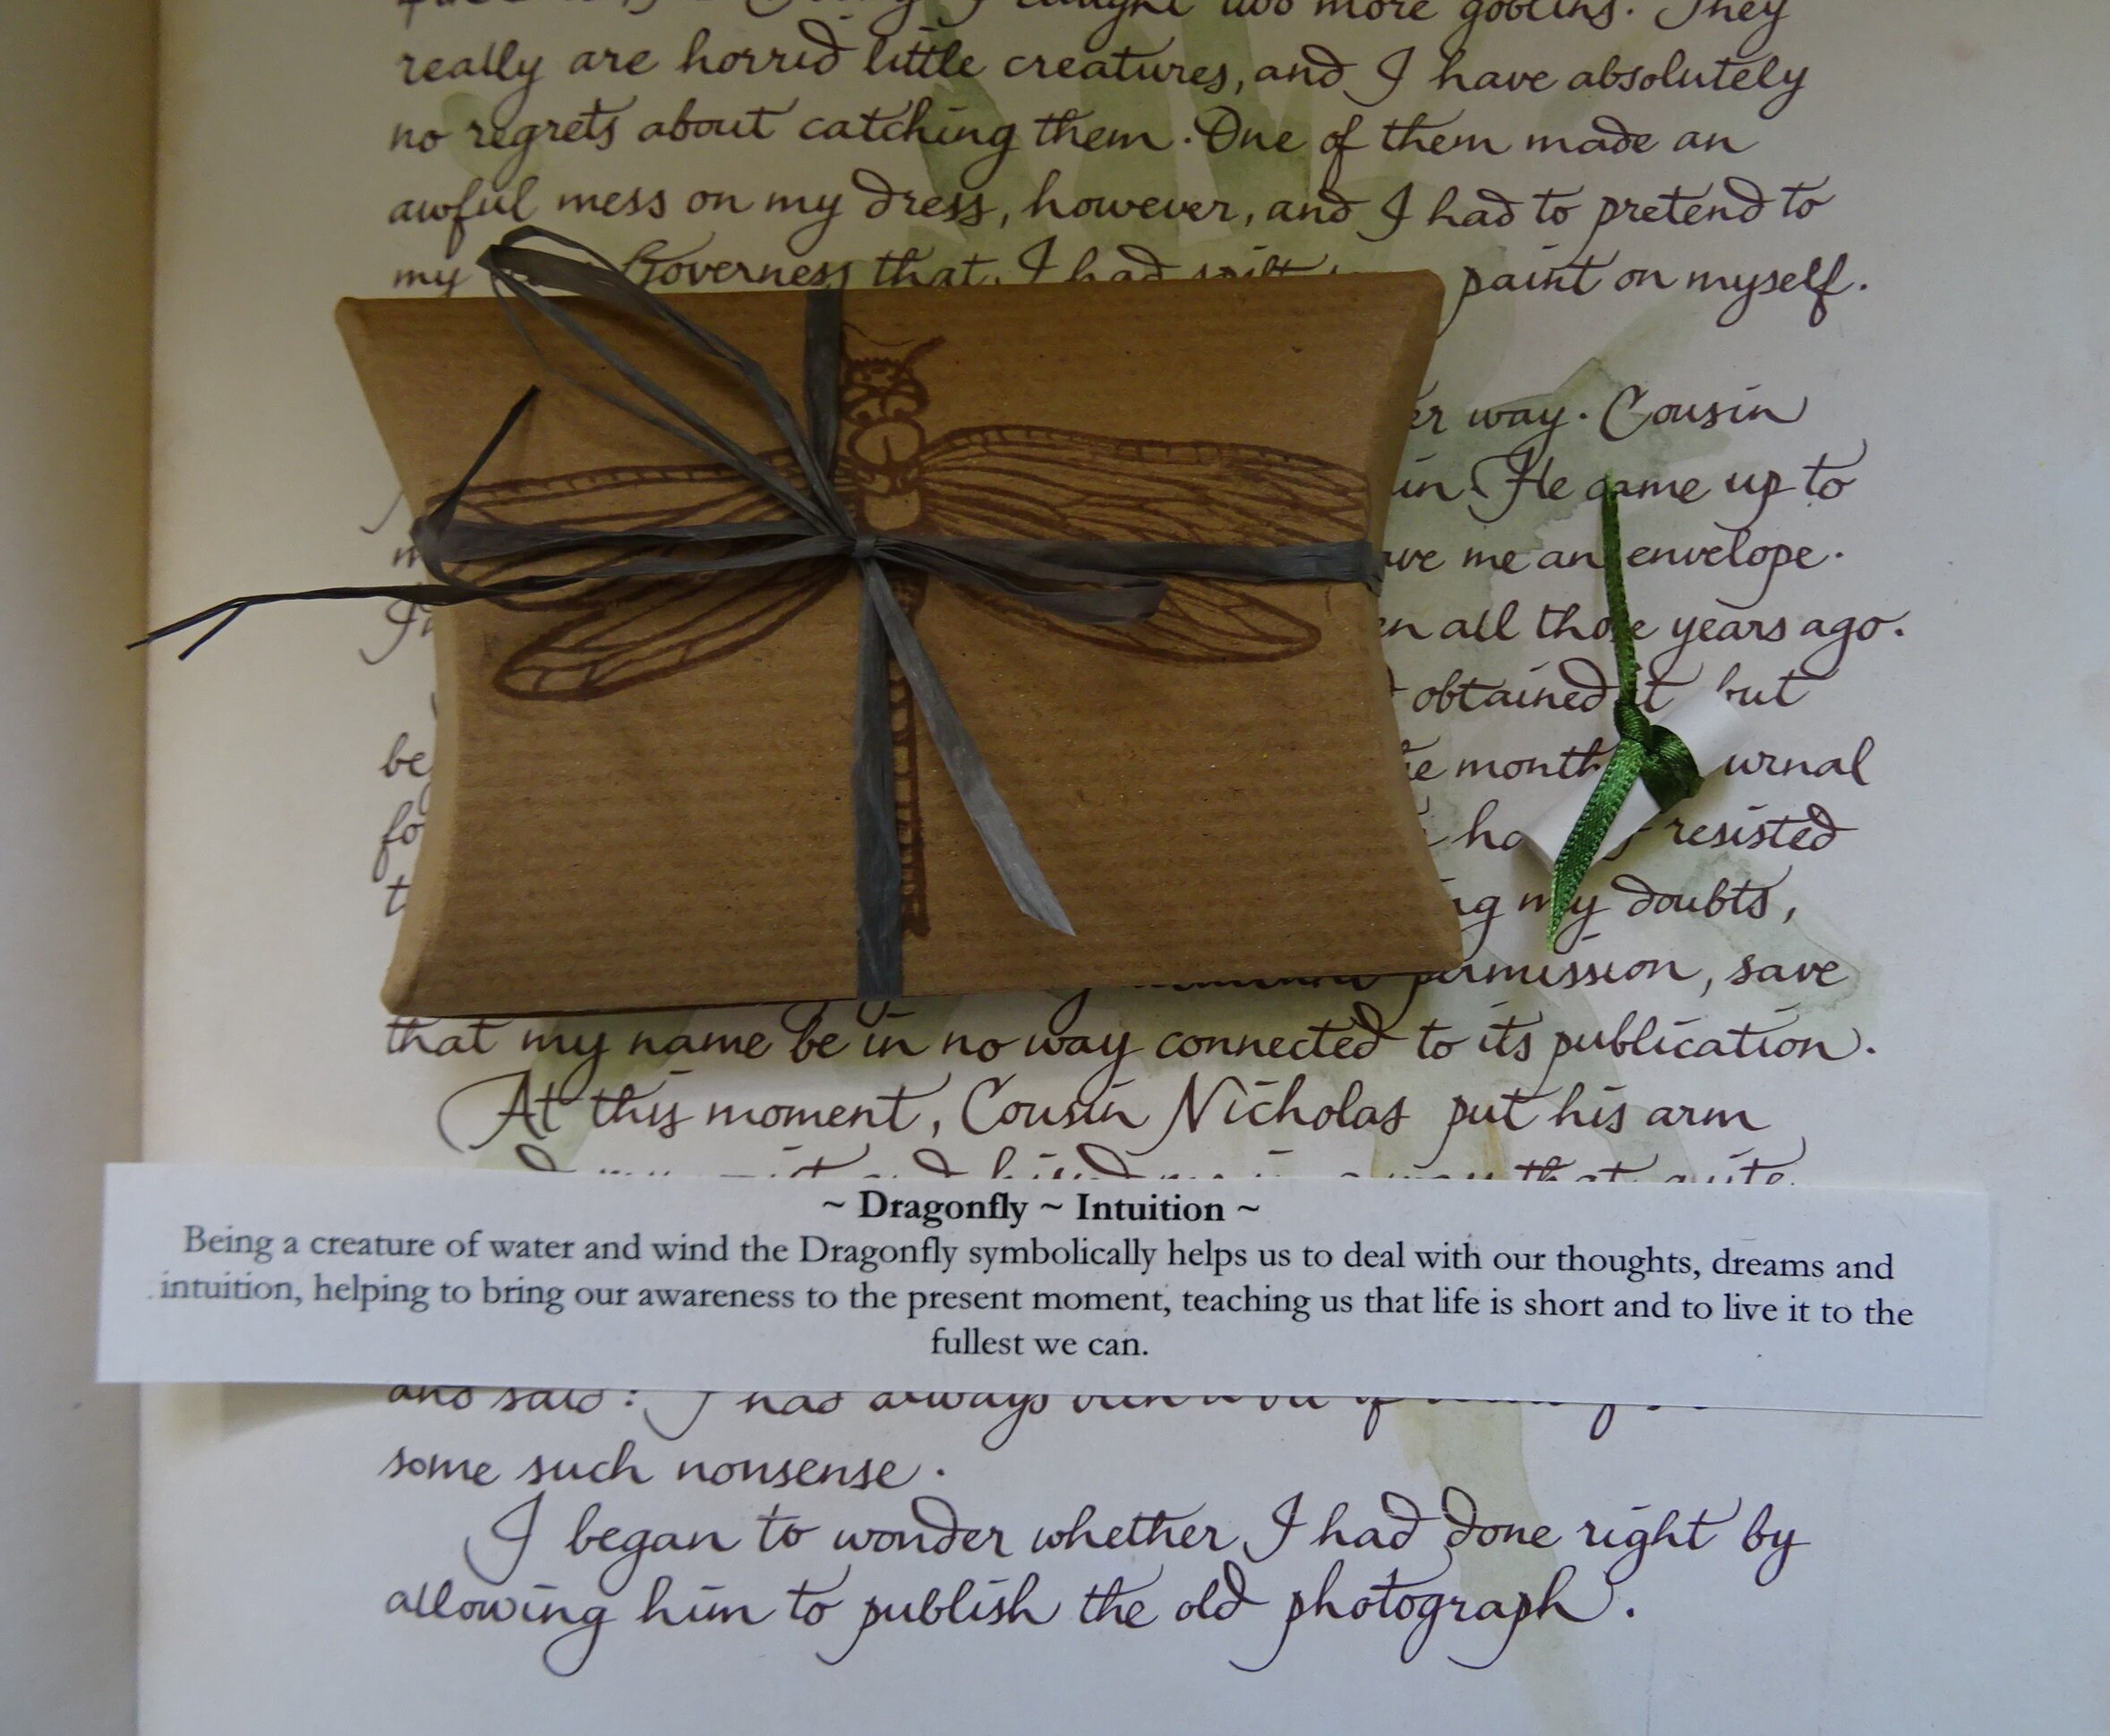 caught two more goblins. They
really are horrid little creatures, and I have absolutely
no regrets about catching them. One of them made an
awful mess on my dress, however, and I had to pretend to
my Governess that I had spilt paint on myself.
way. Cousin
He came up to
me an envelope.
all those years ago.
obtained it but
be
month
resisted
my doubts,
permission, save
that my name be in no way connected to its publication.
At this moment, Cousin Nicholas put his arm
~ Dragonfly ~ Intuition ~
Being a creature of water and wind the Dragonfly symbolically helps us to deal with our thoughts, dreams and
intuition, helping to bring our awareness to the present moment, teaching us that life is short and to live it to the
fullest we can.
and said: I had always been a bit of
some such nonsense.
I began to wonder whether I had done right by
allowing him to publish the old photograph.